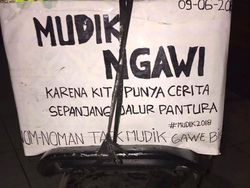 09-06-20
MUDIK
NGAWI
KARENA KITA PUNYA CERITA
SEPANJANG JALUR PANTURA
#MUDIK2018
NOM-NOMAN TAEK MUDIK GAWE B